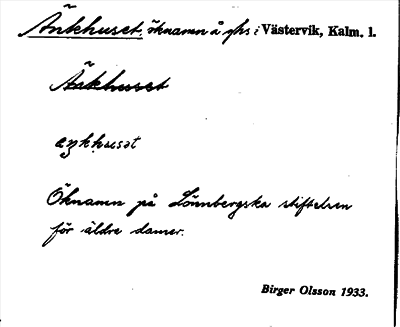 Änkhuset, öknamn å yhs i Västervik, Kalm. l.
Änkhuset
äŋkhusət
Öknamn på Lönnbergska stiftelsen
för äldre damer.
Birger Olsson 1933.